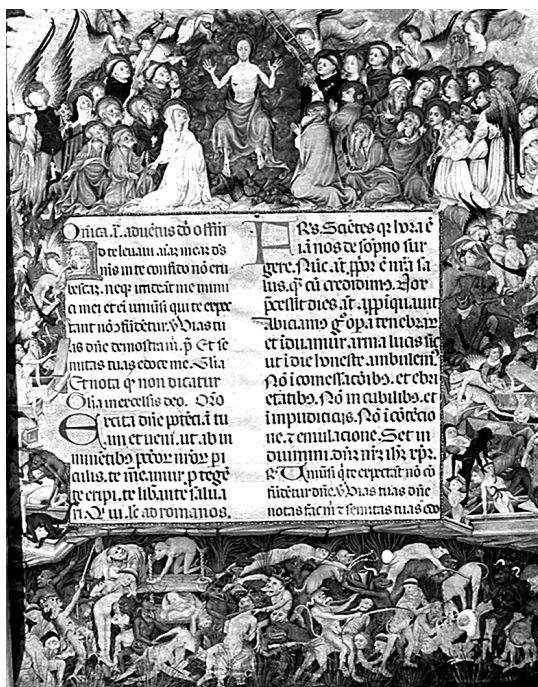 Dñica .i. adventus dñi offm̃
Ad te levavi aiãz meaz ds̃
ms̃ in te confido nõ eru
bescaz. neqz irrideãt me inimi
ci mei et eĩ univsi qui te expe
tant nõ cõfũdetur. Vias tu
as dñe demostra m̃. p̃. Et se
mitas tuas edoce me. Glia
Et nota qz non dicatur
Glia in excelsis deo. Orõ
Excita dñe potẽciã tu
am et veni. ut ab im
minẽtibz pccõr nrõr pi
culis. te me.amur p tegẽ
te eripi. te libante salua
ri. Q̃ vi. le ad romanos.
FRs̃. Sciẽtes qz hora ẽ
iã nos de sopno sur
gere. Nũc .ãt. ppor ẽ nrã sa
lus. q̃ cũ credidim9. Nox
pcessit dies .ãt. appiquavit
Abiciam9 gº opa tenebrar
et iduamur arma lucis sic
ut i die honeste ambulem9
Nõ i comessacõibz. et ebri
etatibz. Nõ in cubilibz. et
impudicicijs. Nõ i cõtẽcio
ne. ⁊ emulacione. Set in
duimini. dñz nrz̃ ihz̃ xpz̃.
R Univsi q te expectãt nõ cõ
fũdetur dñe. Vias tuas dñe
notas fac m̃ ⁊ semitas tuas edo